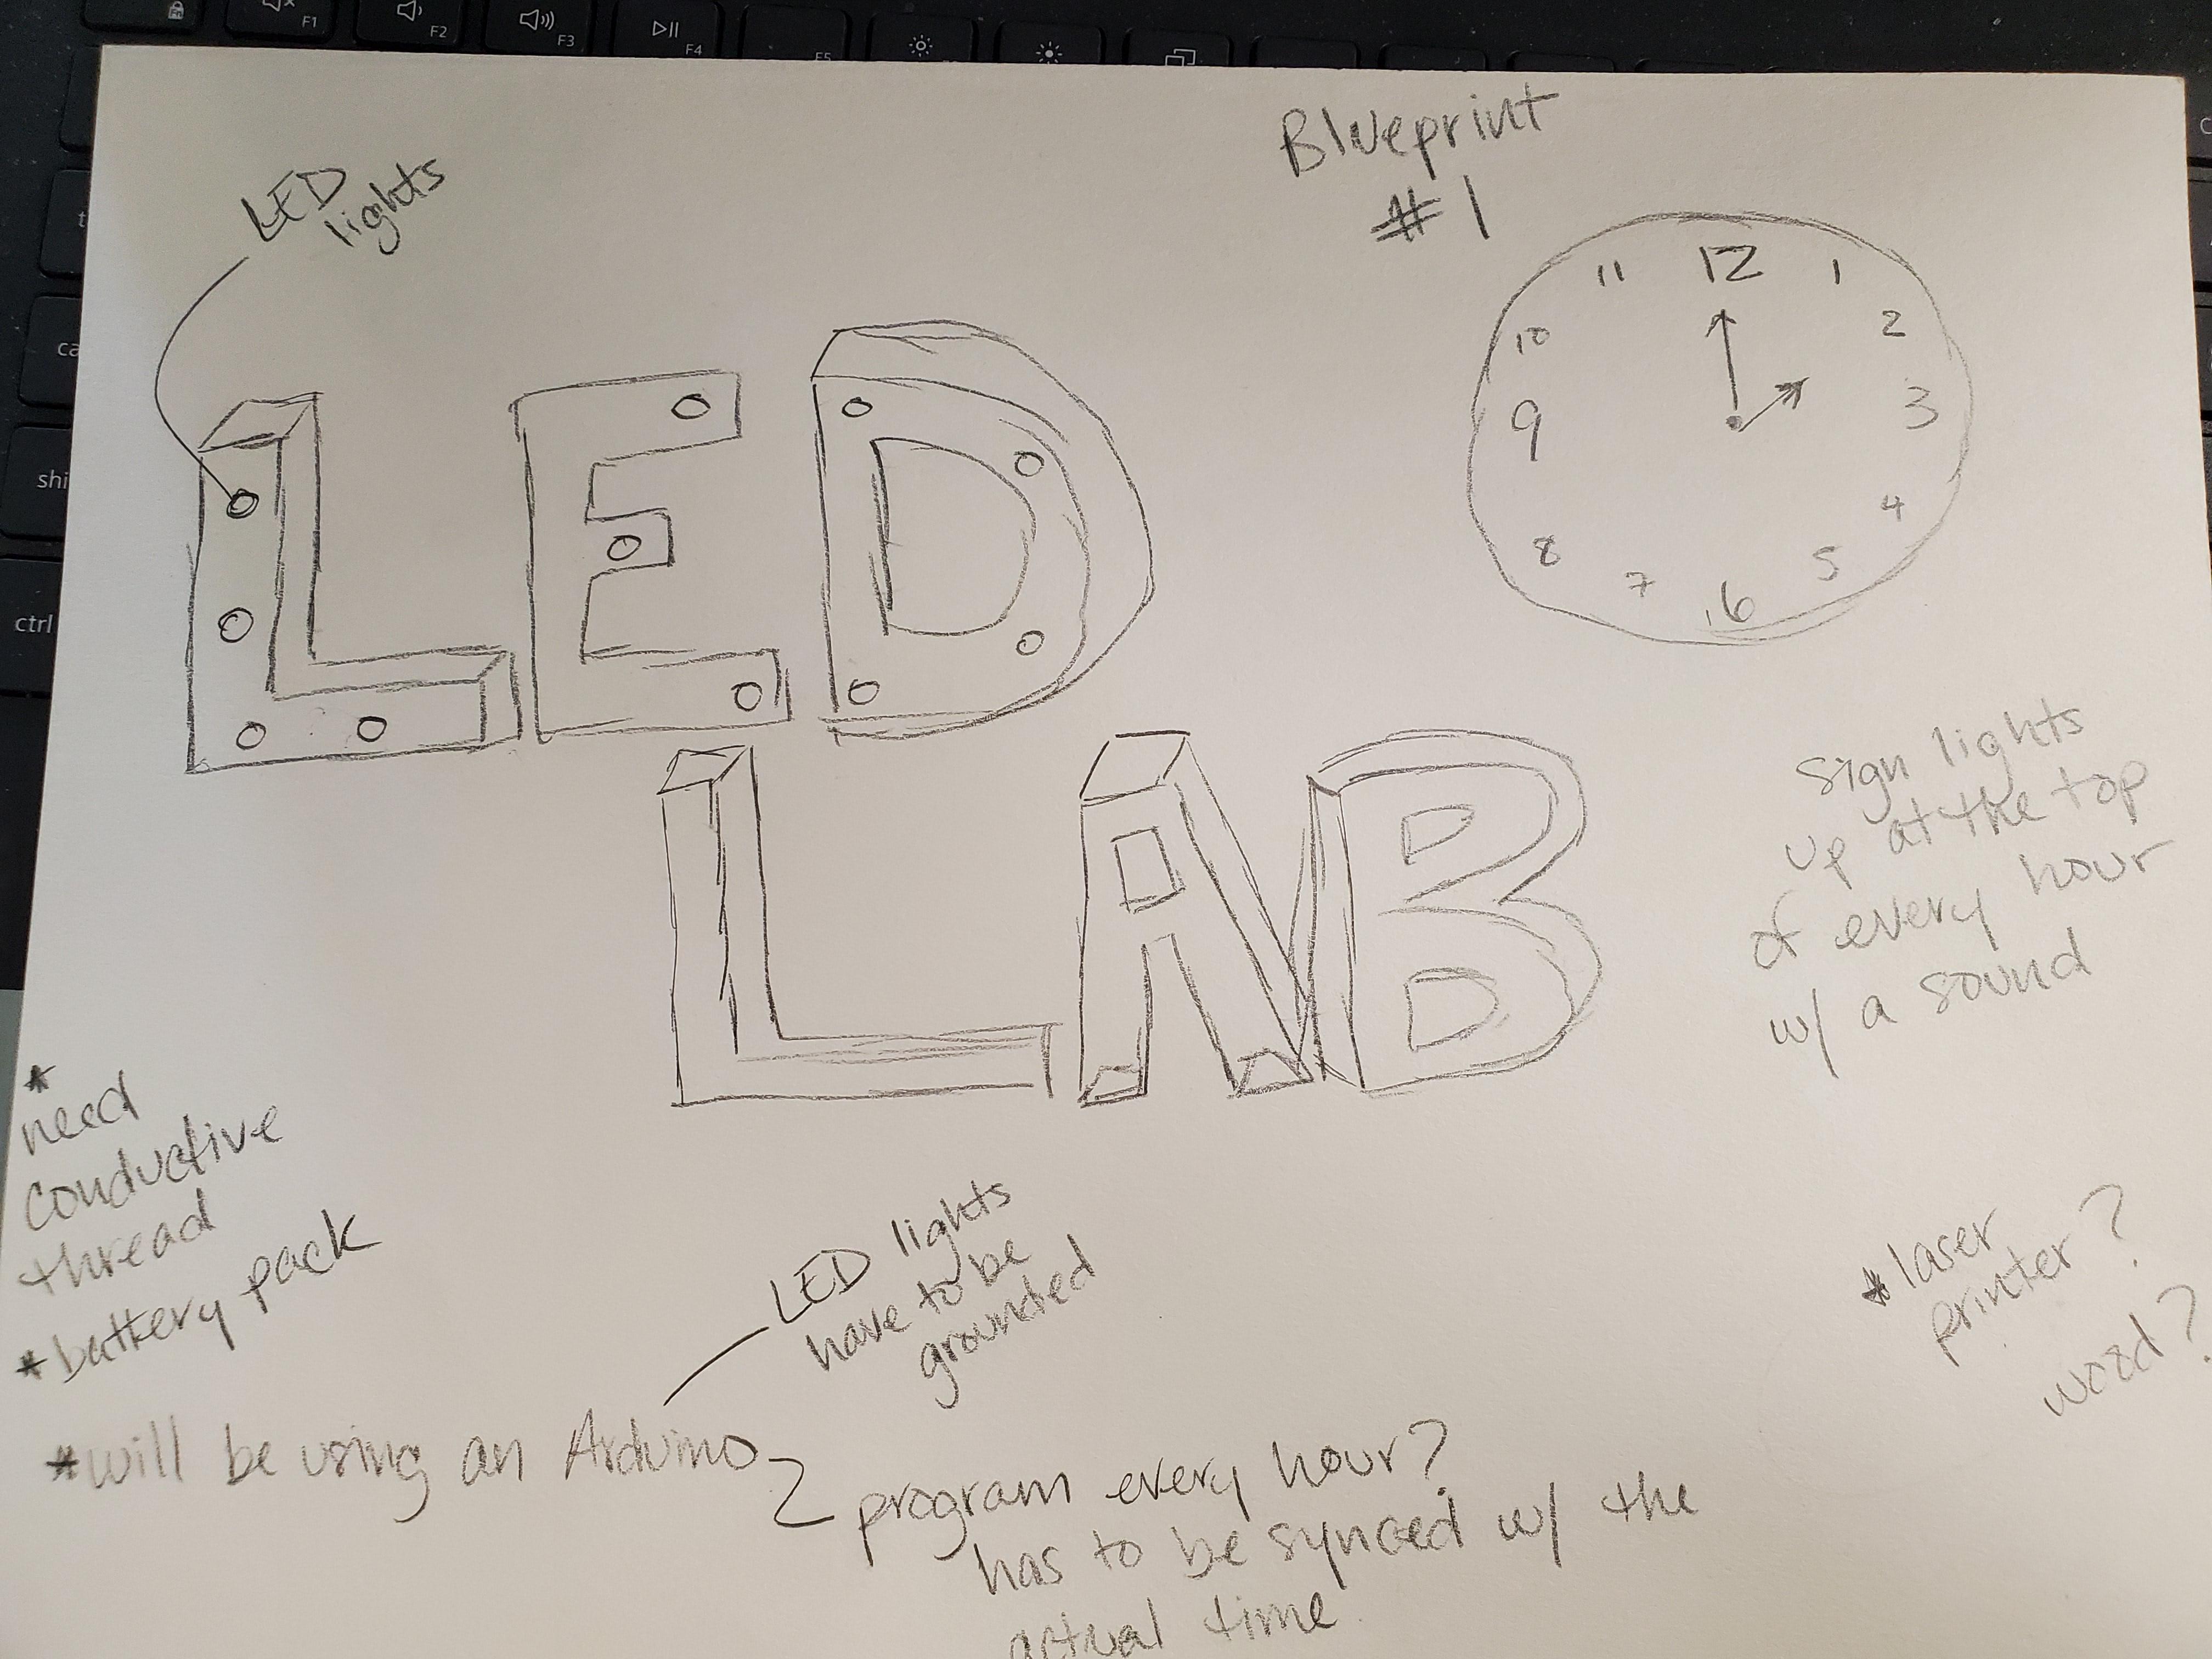 F1
F2
F3
F4
F5
Blueprint
#1
LED
lights
11 12 1
10 2
9 3
8 4
7 6 5
LED
LAB
sign lights
up at the top
of every hour
w/ a sound
*
need
conductive
thread
*battery pack
LED lights
have to be
grounded
*laser
printer?
wood?
*will be using an Arduino
program every hour?
has to be synced w/ the
actual time.
shi
ctrl
ca